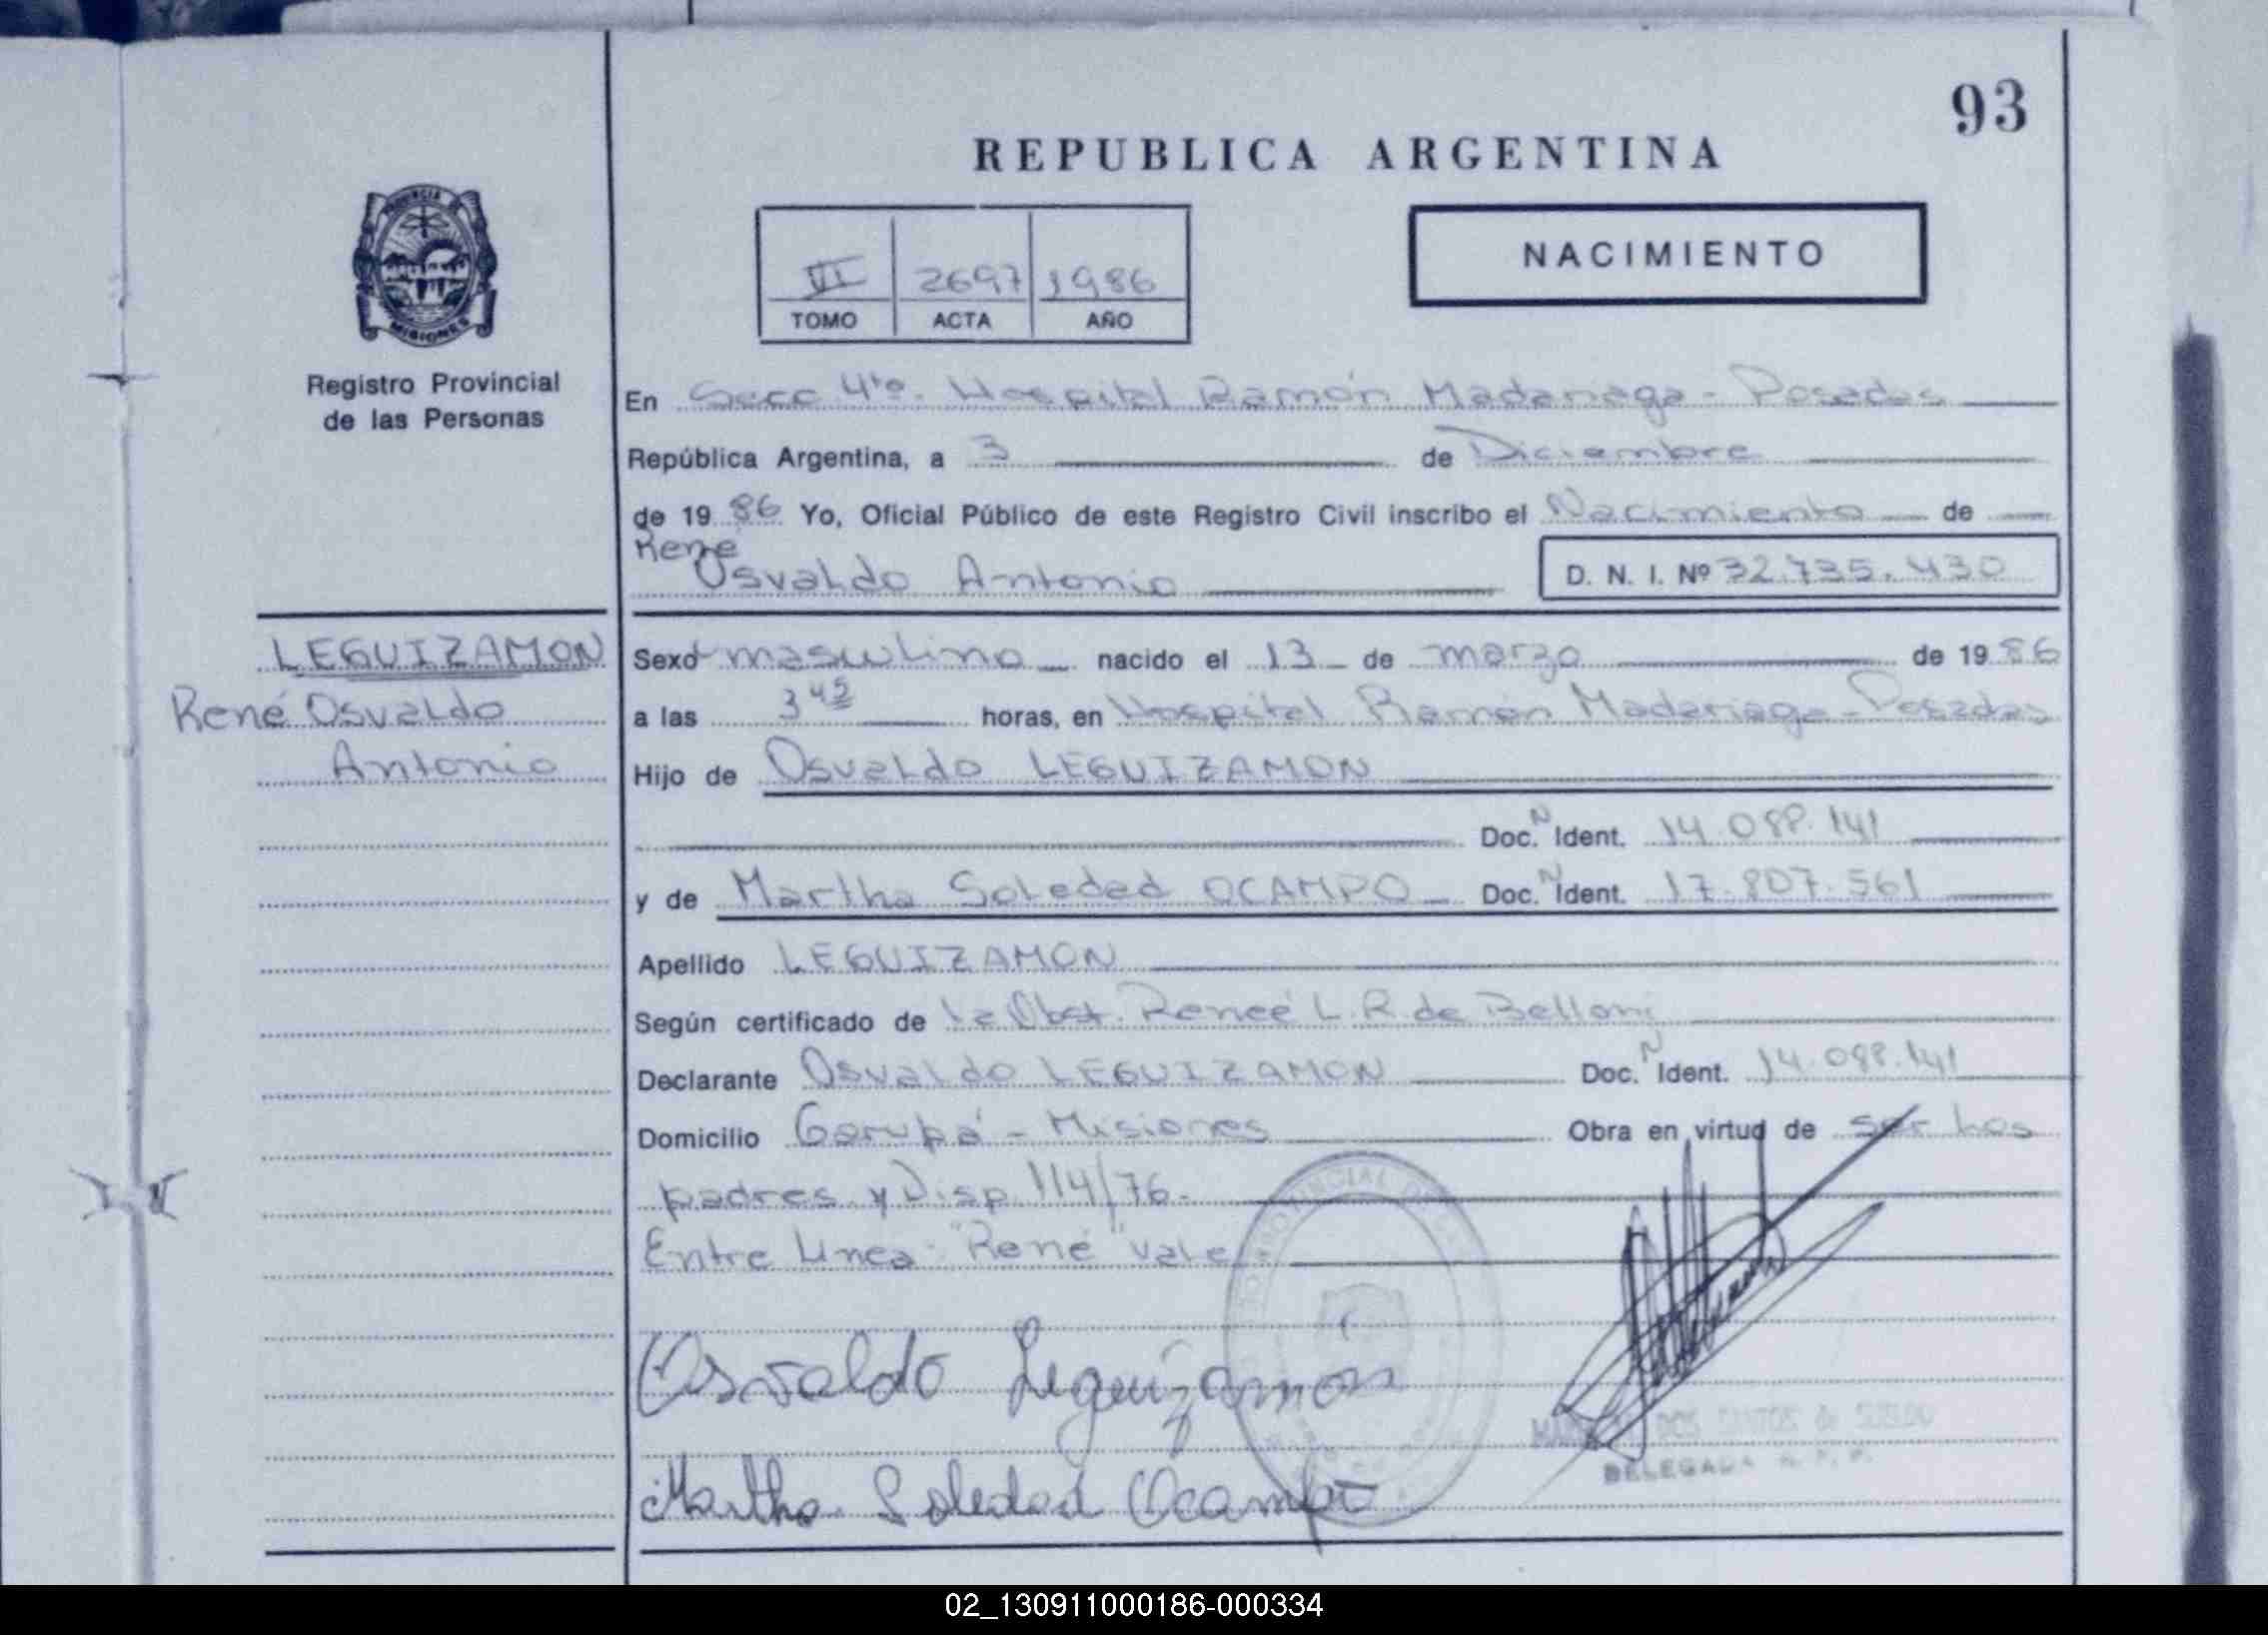 93
REPUBLICA ARGENTINA
PROVINCIA DE
MISIONES
Registro Provincial
de las Personas
VI 2697 1986
TOMO ACTA AÑO
NACIMIENTO
En Secc 4ta. Hospital Ramón Madariaga - Posadas
República Argentina, a 3 de Diciembre
de 1986 Yo, Oficial Público de este Registro Civil inscribo el Nacimiento de
René
Osvaldo Antonio D. N. I. Nº 32.735.430
LEGUIZAMON
René Osvaldo
Antonio
Sexo masculino nacido el 13 de marzo de 1986
a las 3 45 horas, en Hospital Ramón Madariaga - Posadas
Hijo de Osvaldo LEGUIZAMON
Doc. N Ident. 14.088.141
y de Martha Soledad OCAMPO Doc. N Ident. 17.807.561
Apellido LEGUIZAMON
Según certificado de la Obst. Reneé L. R. de Belloni
Declarante Osvaldo LEGUIZAMON Doc. N Ident. 14.088.141
Domicilio Garupá - Misiones Obra en virtud de ser los
padres y Disp. 114/76.
Entre Linea: "René" vale
Osvaldo Leguizamon
DOS SANTOS de
DELEGADA R. P. P.
Martha Soledad Ocampo
02_130911000186-000334